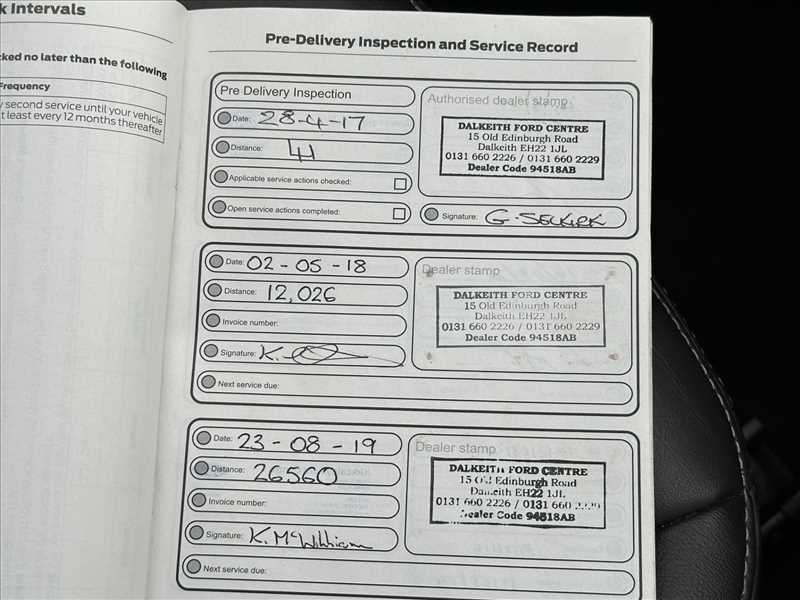 k Intervals
cked no later than the following
Frequency
y second service until your vehicle
t least every 12 months thereafter
Pre-Delivery Inspection and Service Record
Pre Delivery Inspection
Date: 28-4-17
Distance:
Applicable service actions checked:
Open service actions completed:
Authorised dealer stamp
DALKEITH FORD CENTRE
15 Old Edinburgh Road
Dalkeith EH22 1JL
0131 660 2226 / 0131 660 2229
Dealer Code 94518AB
Signature: G. SELKIRK
Date: 02-05-18
Distance: 12,026
Invoice number:
Signature: K.
Next service due:
Dealer stamp
DALKEITH FORD CENTRE
15 Old Edinburgh Road
Dalkeith EH22 1JL
0131 660 2226 / 0131 660 2229
Dealer Code 94518AB
Date: 23-08-19
Distance: 26560
Invoice number:
Signature: K. McWilliam
Next service due:
Dealer stamp
DALKEITH FORD CENTRE
15 Old Edinburgh Road
Dalkeith EH22 1JL
0131 660 2226 / 0131 660 2229
Dealer Code 94518AB